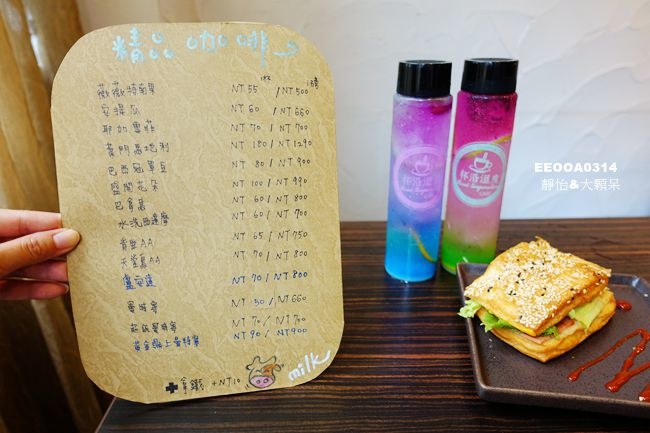 精品咖啡
1杯 1磅
薇薇特南果 NT 55 / NT 500
安提瓜 NT 60 / NT 660
耶加雪菲 NT 70 / NT 700
黃門高地利 NT 180 / NT 1290
巴西冠軍豆 NT 80 / NT 900
盛開花朵 NT 100 / NT 990
巴拿馬 NT 60 / NT 800
水洗西達摩 NT 60 / NT 700
肯亞AA NT 65 / NT 750
天堂鳥AA NT 70 / NT 800
盧安達 NT 70 / NT 800
曼特寧 NT 50 / NT 660
莊飯曼特寧 NT 70 / NT 700
黃金爪上曼特寧 NT 90 / NT 900
拿鐵 +NT10
milk
杯沿滋事
杯沿滋事
EEOOA0314
靜怡&大顆呆